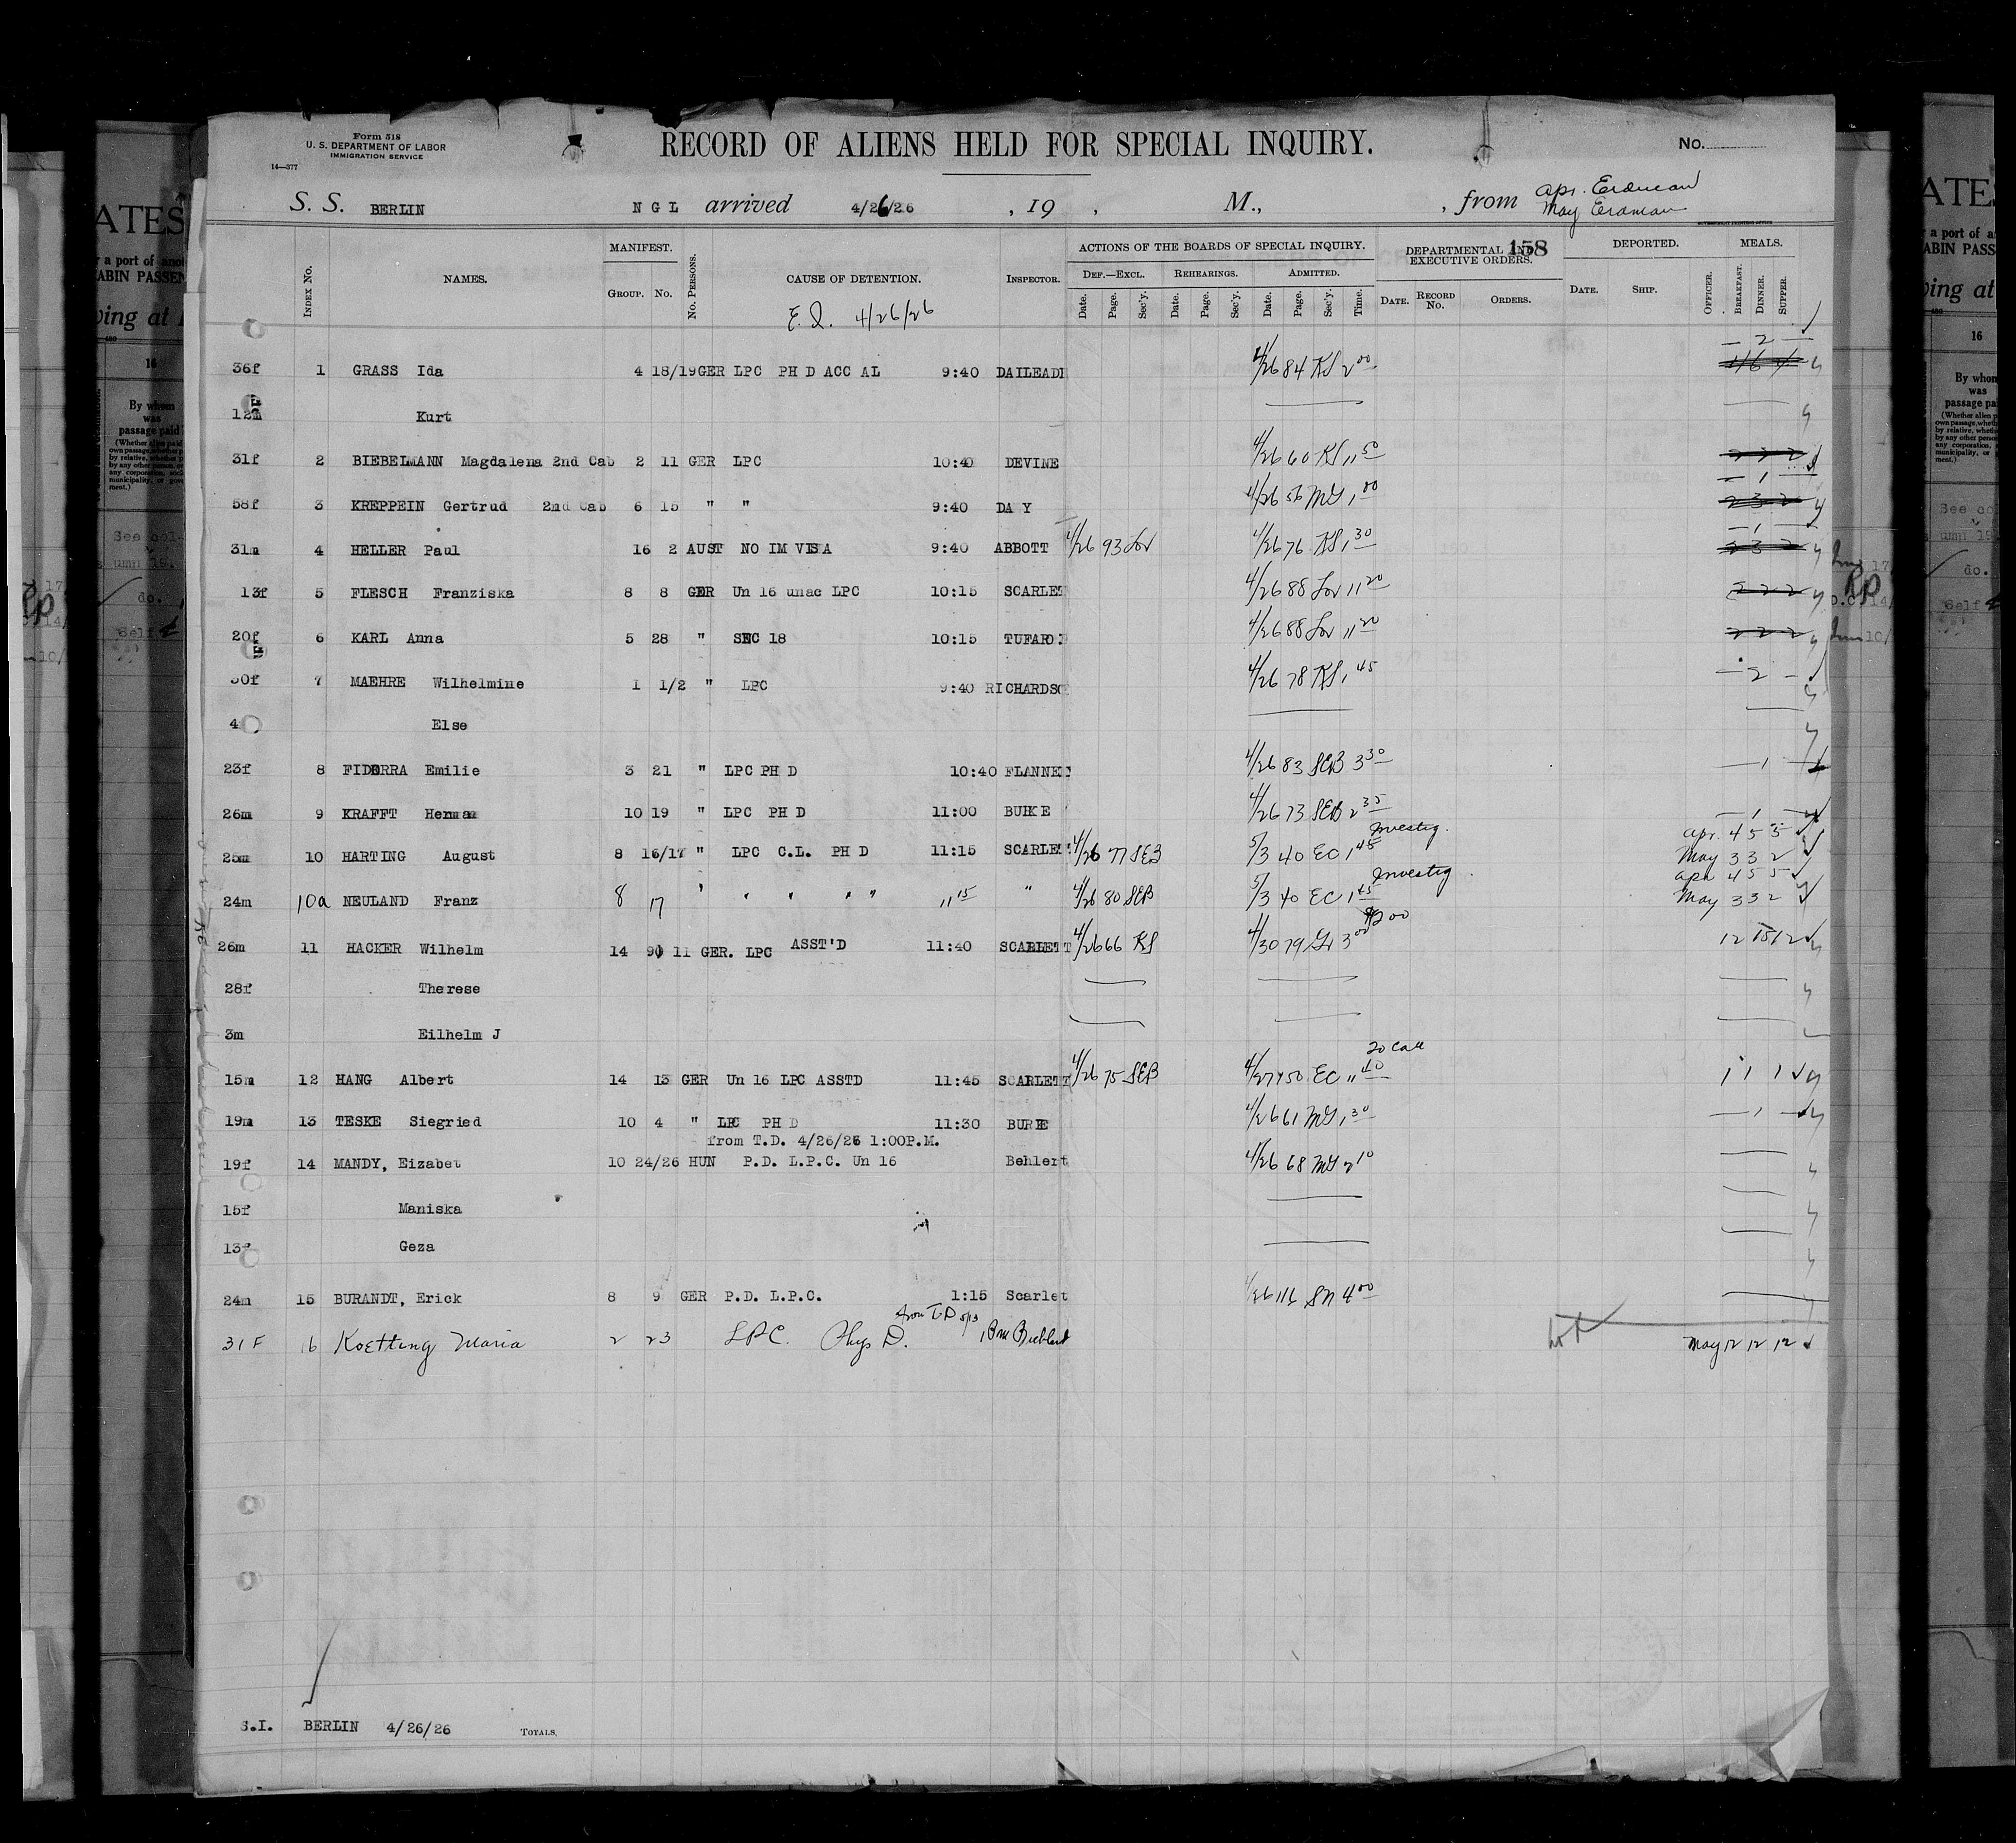 Form 518
U. S. DEPARTMENT OF LABOR
IMMIGRATION SERVICE
14—377
RECORD OF ALIENS HELD FOR SPECIAL INQUIRY.
No.
S. S. BERLIN N G L arrived 4/26/26 , 19 , M., , from Apr. Erdman
May Erdman
158
INDEX No. NAMES. MANIFEST. GROUP. No. No. PERSONS. CAUSE OF DETENTION. INSPECTOR. ACTIONS OF THE BOARDS OF SPECIAL INQUIRY. DEPARTMENTAL AND EXECUTIVE ORDERS. DEPORTED. MEALS.
DEF.—EXCL. REHEARINGS. ADMITTED.
Date. Page. Sec'y. Date. Page. Sec'y. Date. Page. Sec'y. Time. DATE. RECORD No. ORDERS. DATE. SHIP. OFFICER. BREAKFAST. DINNER. SUPPER.
4/26/26
36f 1 GRASS Ida 4 18/19 GER LPC PH D ACC AL 9:40 DAILEADI 4/26 84 KS 2 00 — 2 —
12m Kurt
31f 2 BIEBELMANN Magdalena 2nd Cab 2 11 GER LPC 10:40 DEVINE 4/26 60 KS 11 50 2 2 2
58f 3 KREPPEIN Gertrud 2nd Cab 6 15 " " 9:40 DAY 4/26 56 MG 1 00 — 1 — 2 3 2
31m 4 HELLER Paul 16 2 AUST NO IM VISA 9:40 ABBOTT 4/26 93 Lov 4/26 76 KS 1 30 — 1 — 2 3 2
13f 5 FLESCH Franziska 8 8 GER Un 16 unac LPC 10:15 SCARLET 4/26 88 Lov 11 20 2 2 2
20f 6 KARL Anna 5 28 " SEC 18 10:15 TUFARO 4/26 88 Lov 11 20 2 2 2
7 MAEHRE Wilhelmine 1 1/2 " LPC 9:40 RICHARDSO 4/26 78 KS 1 45 — 2 —
4 Else
23f 8 FIDORRA Emilie 3 21 " LPC PH D 10:40 FLANNE 4/26 83 SEB 3 30 — 1 —
26m 9 KRAFFT Herman 10 19 " LPC PH D 11:00 BURKE 4/26 73 SEB 2 35 — 1 —
25m 10 HARTING August 8 16/17 " LPC C.L. PH D 11:15 SCARLET 4/26 77 SEB 5/3 40 EC 1 45 Investig. Apr. 4 5 5
May 3 3 2
24m 10a NEULAND Franz 8 17 " " " " 11 15 " 4/26 80 SEB 5/3 40 EC 1 45 Investig. Apr 4 5 5
May 3 3 2
26m 11 HACKER Wilhelm 14 90 11 GER. LPC ASST'D 11:40 SCARLETT 4/26 66 KS 4/30 79 3 00 $200 12 15 12
28f Therese
3m Eilhelm J
15m 12 HANG Albert 14 13 GER Un 16 LPC ASSTD 11:45 SCARLETT 4/26 75 SEB 4/27 450 EC 11 40 To Call 1 1 1
19m 13 TESKE Siegried 10 4 " LPC PH D 11:30 BURKE 4/26 61 MG 1 30 — 1 —
from T.D. 4/26/26 1:00P.M.
19f 14 MANDY, Eizabet 10 24/26 HUN P.D. L.P.C. Un 16 Behlert 4/26 68 MG 2 10
15f Maniska
13f Geza
24m 15 BURANDT, Erick 8 9 GER P.D. L.P.C. 1:15 Scarlet 4/26 116 SN 4 00
from T.D 5/13
31 F 16 Koetting Maria 2 23 LPC. Phys D. 1 PM May 12 12 12
S.I. BERLIN 4/26/26 TOTALS,
ATES
r a port of
CABIN PASSEN
ving at
16
By whom
was
passage paid
See col-
umn 19.
do.
Self